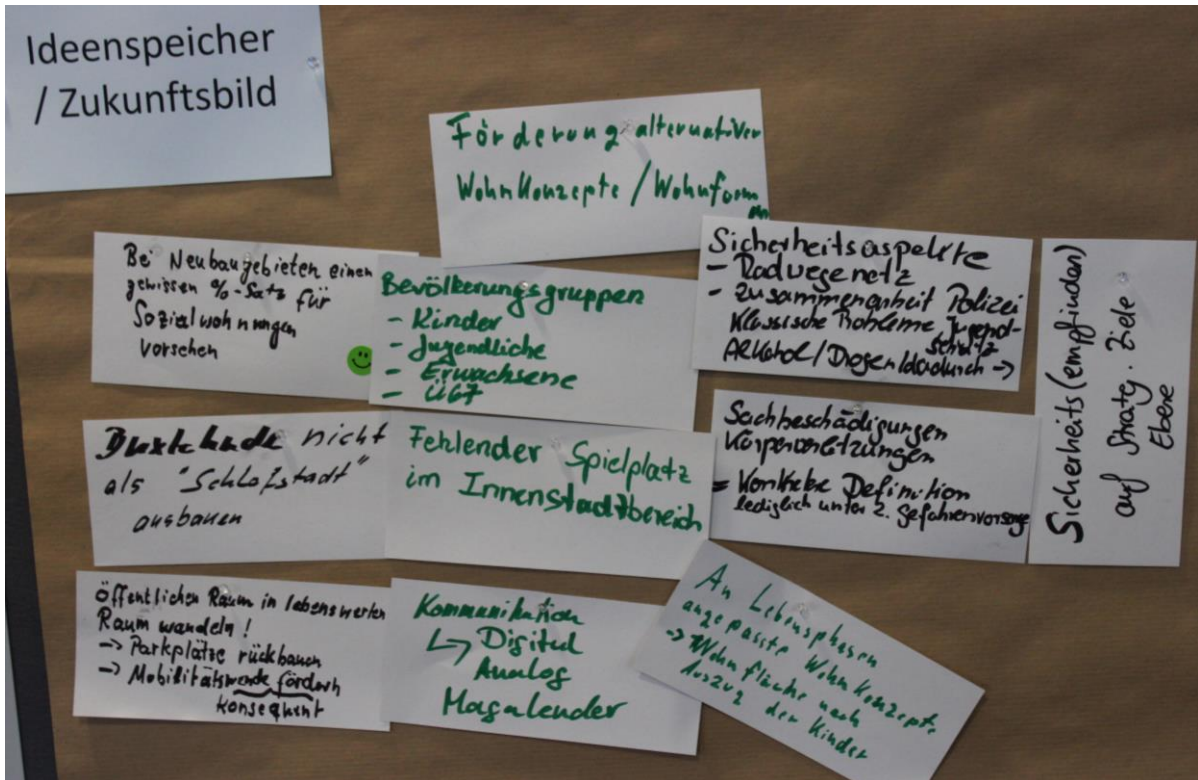 Ideenspeicher
/ Zukunftsbild
Förderung alternativer
Wohnkonzepte / Wohnform
en
Bei Neubaugebieten einen
gewissen %-Satz für
Sozialwohnungen
vorsehen
Bevölkerungsgruppen
- Kinder
- Jugendliche
- Erwachsene
- Ü67
Sicherheitsaspekte
- Radwegenetz
- Zusammenarbeit Polizei
Klassische Probleme Jugend-
schutz
Alkohol/Drogen/dadurch →
Sicherheits(empfinden)
auf Strateg. Ziele
Ebene
Buxtehude nicht
als "Schlafstadt"
ausbauen
Fehlender Spielplatz
im Innenstadtbereich
Sachbeschädigungen
Körperverletzungen
= Konkrete Definition
lediglich unter 2. Gefahrenvorsorge
öffentlichen Raum in lebenswerten
Raum wandeln!
→ Parkplätze rückbauen
→ Mobilitätswende fördern
konsequent
Kommunikation
↳ Digital
Analog
Magalender
An Lebensphasen
angepasste Wohnkonzepte
→ Wohnfläche nach
Auszug der Kinder